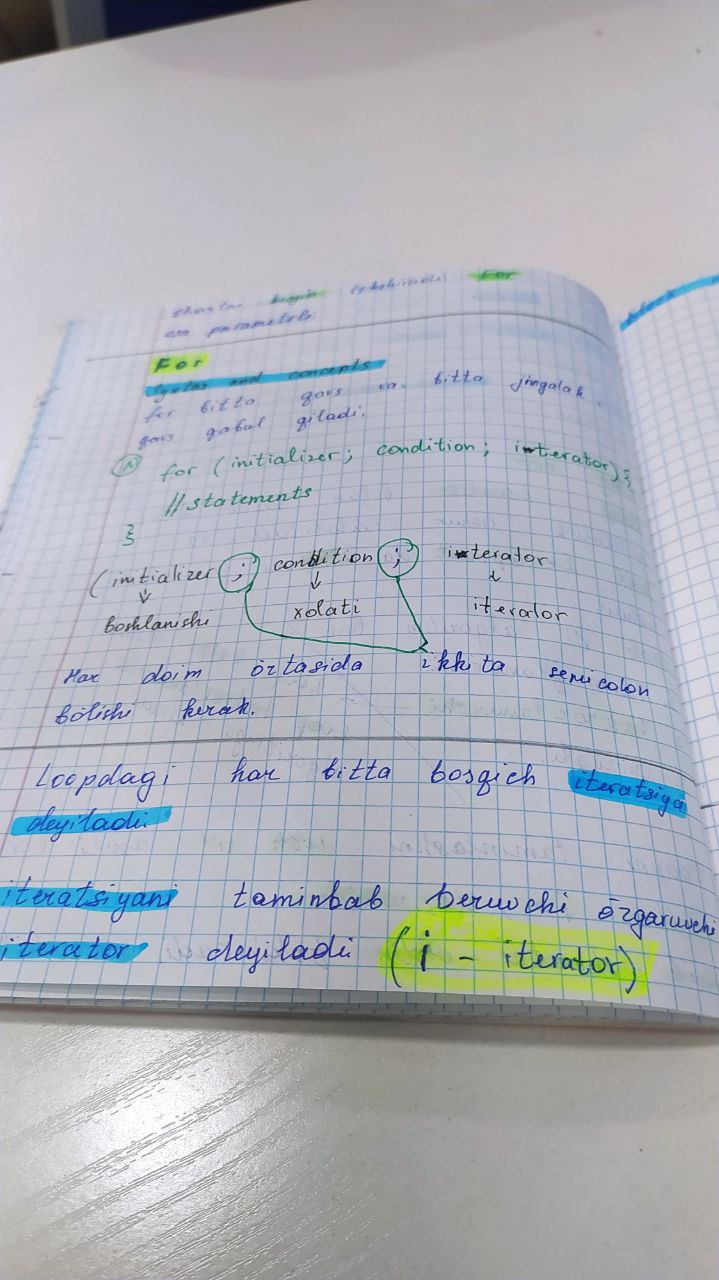 shartni keyin tekshiradi for
ega parametrli
For
Syntax and concepts
for bitta qavs va bitta jingalak
qavs qabul qiladi.
for (initializer; condition; iterator) {
// statements
}
(initializer ; condition ; iterator
boshlanishi xolati iterator
Har doim o'rtasida ikkita semicolon
bo'lishi kerak.
Loopdagi har bitta bosqich iteratsiya
deyiladi
iteratsiyani taminbab beruvchi o'zgaruvchi
iterator deyiladi (i - iterator)